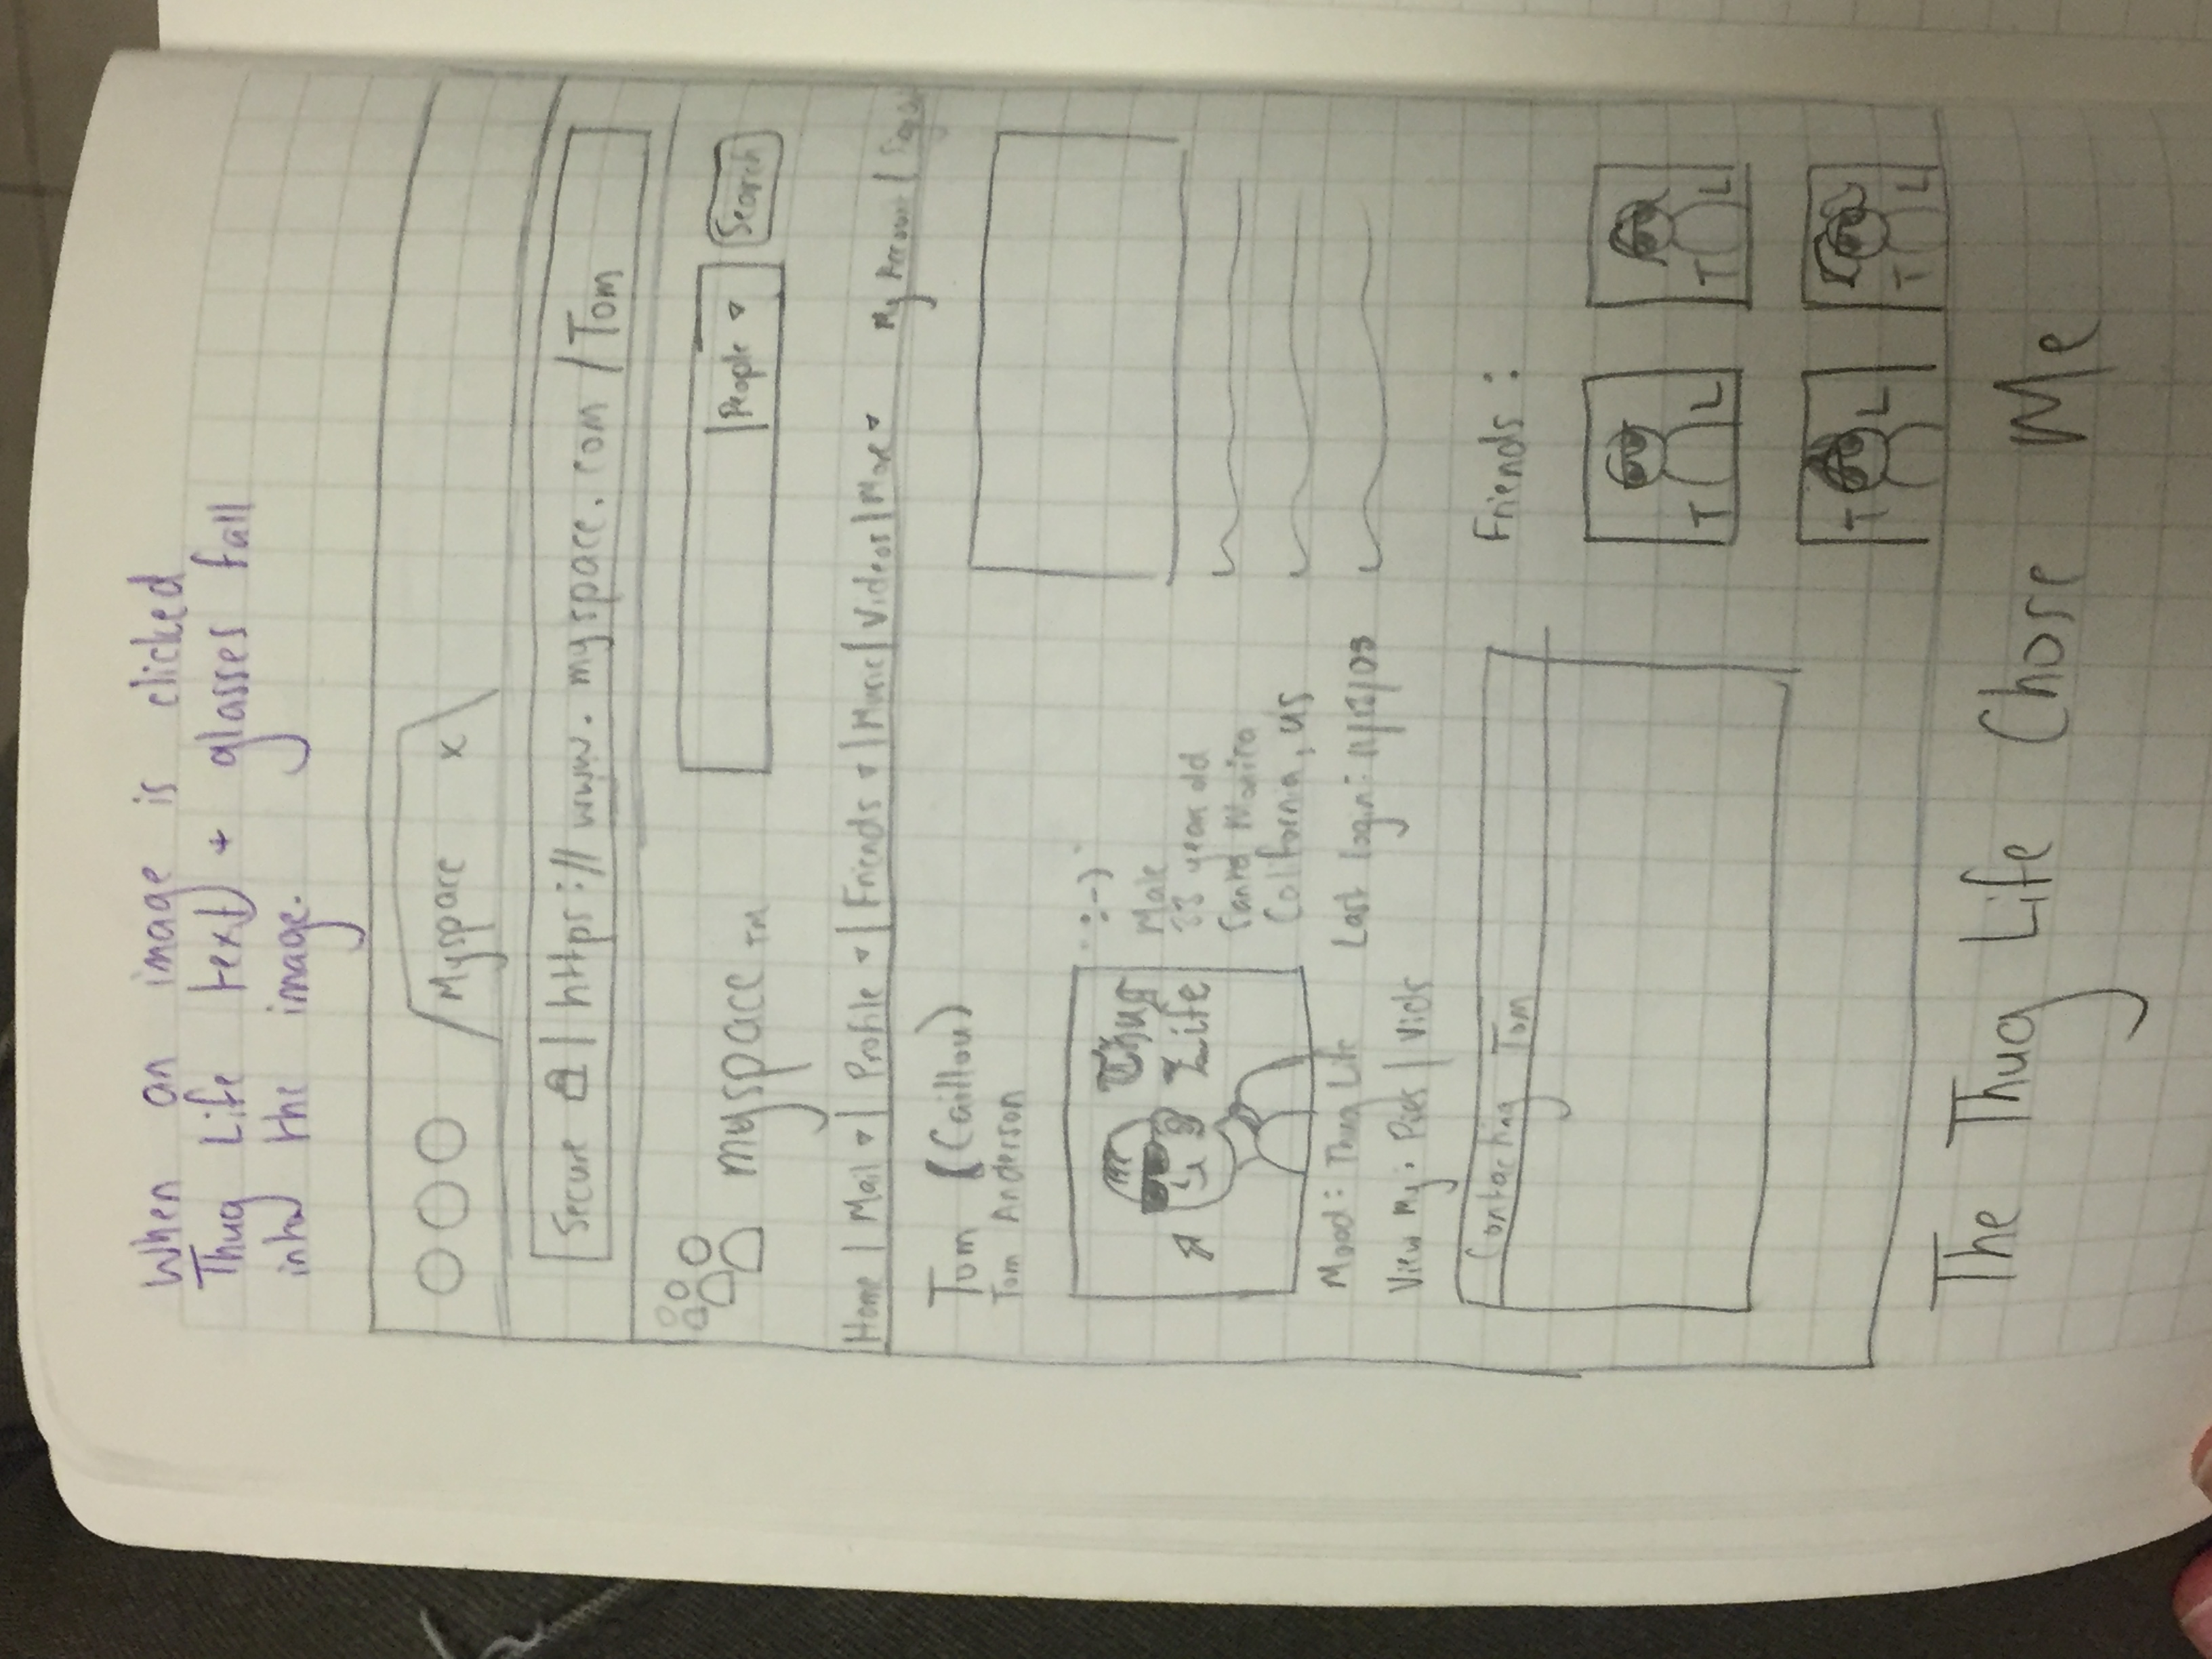 When an image is clicked
Thug Life text + glasses fall
into the image.
Myspace x
Secure | https://www.myspace.com/Tom
myspace TM
People
Search
Home | Mail | Profile | Friends | Music | Videos | More
My Account | Sign Out
Tom (Caillou)
Tom Anderson
Thug
Life
":-)"
Male
33 year old
Santa Monica
California, US
Mood: Thug Life
Last login:
View My: Pics | Vids
Contacting Tom
Friends :
T L
T L
T L
T L
The Thug Life Chose Me